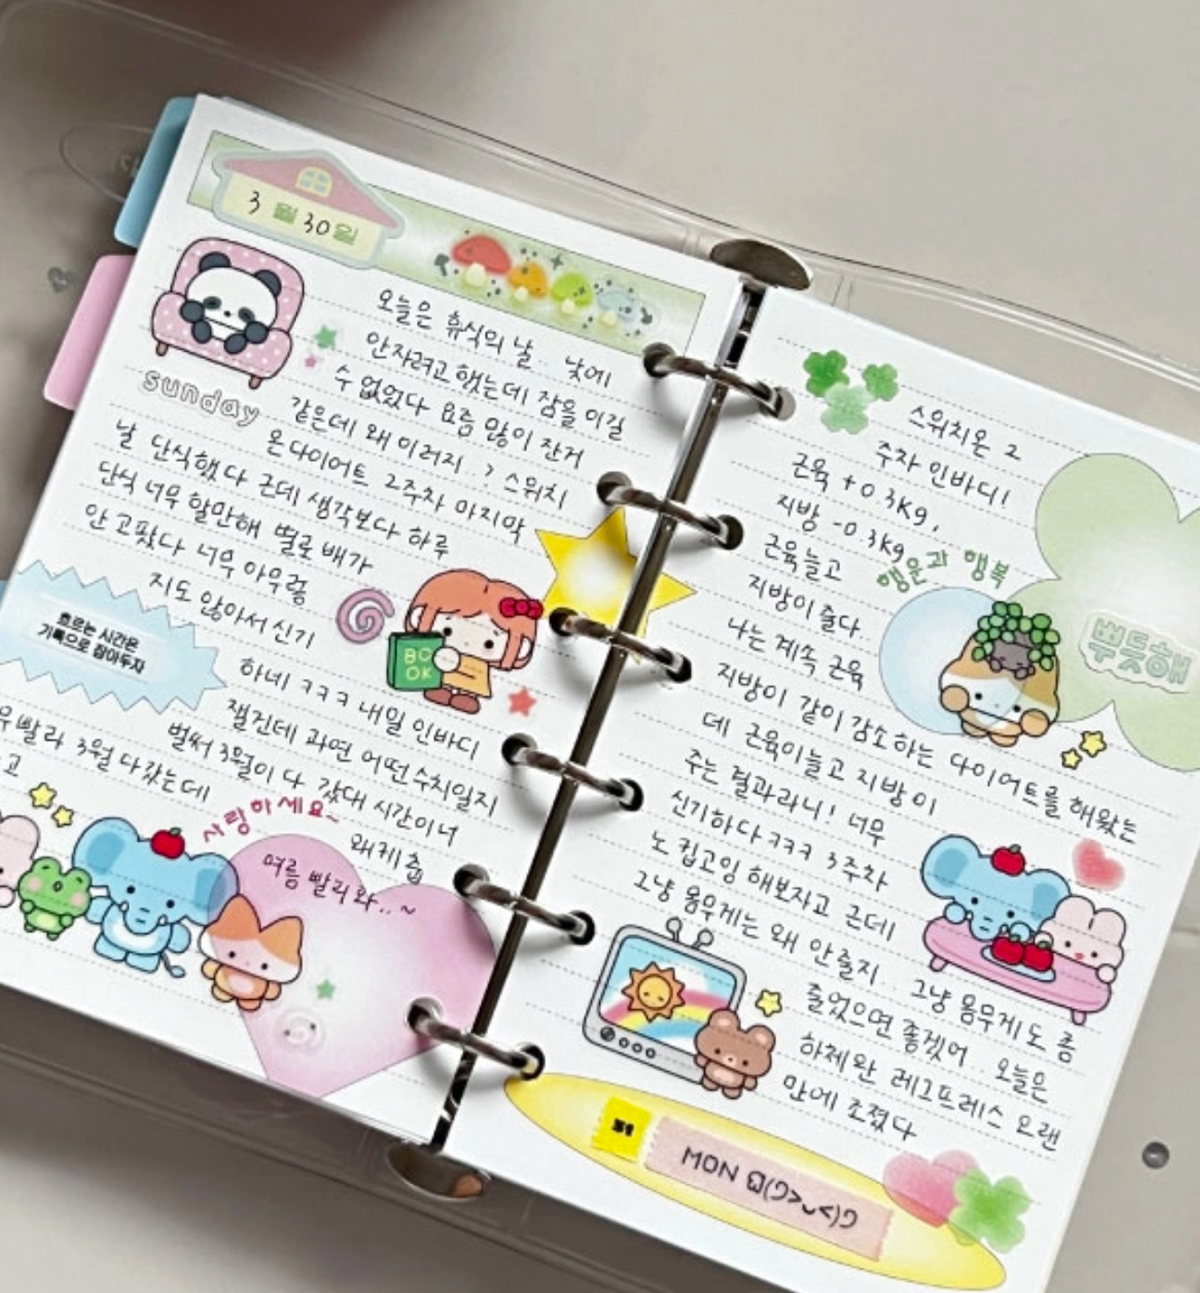 3월 30일
오늘은 휴식의 날.. 낮에
안자려고 했는데 잠을 이길
수 없었다 요즘 많이 잔거
sunday
같은데 왜 이러지..? 스위치
온다이어트 2주차 마지막
날 단식했다 근데 생각보다 하루
단식 너무 할만해 별로 배가
안고팠다 너무 아무렇
지도 않아서 신기
흐르는 시간은
기록으로 잡아두자
BO
OK
하네 ㅋㅋㅋ 내일 인바디
잴건데 과연 어떤 수치일지
벌써 3월이 다 갔대 시간이 너
무 빨라 3월 다갔는데
왜케 춥
고
사랑하세요~
여름 빨리 와..~
스위치온 2
주차 인바디!
근육 +0.3kg,
지방 -0.3kg
행운과 행복
근육늘고
지방이 줄다
뿌듯해
나는 계속 근육
지방이 같이 감소하는 다이어트를 해왔는
데 근육이늘고 지방이
주는 결과라니! 너무
신기하다 ㅋㅋㅋ 3주차
노 킵고잉 해보자고 근데
그냥 몸무게는 왜 안줄지.. 그냥 몸무게도 좀
줄었으면 좋겠어.. 오늘은
하체 완 레그프레스 오랜
만에 조졌다
31
MON